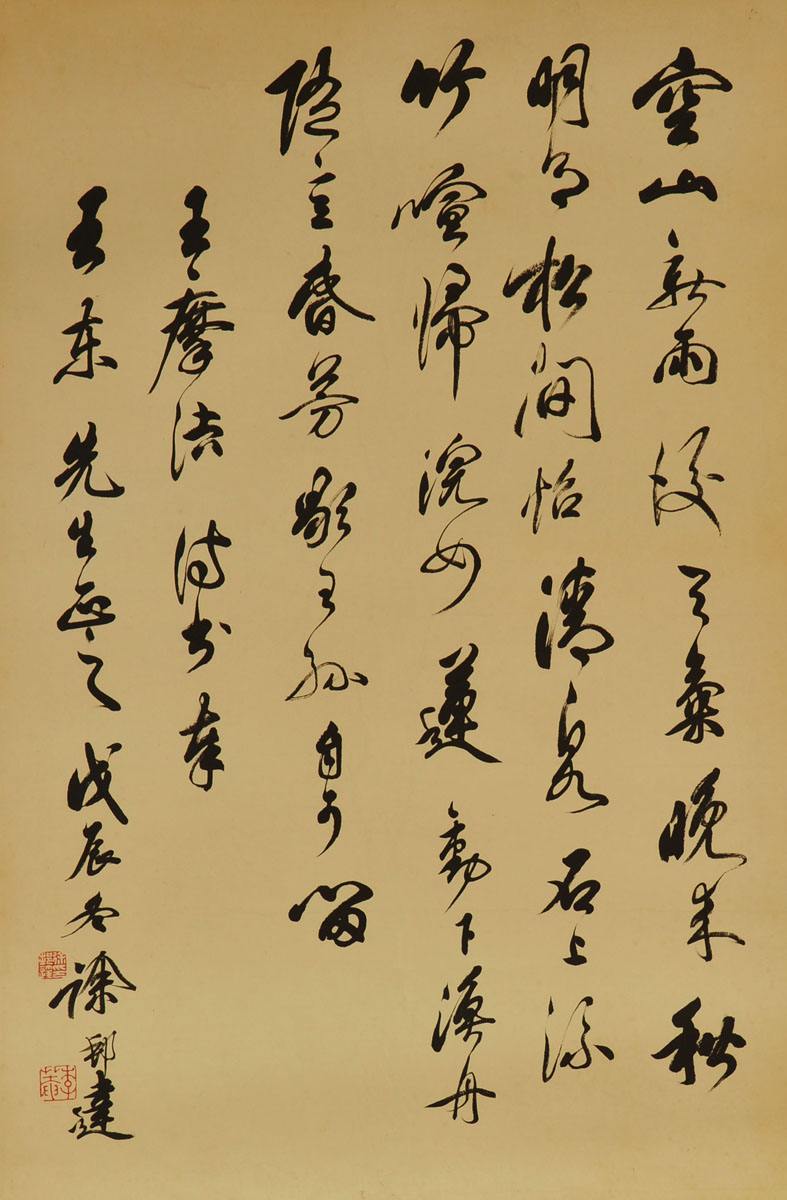 空山新雨後天氣晚來秋
明月松間照清泉石上流
竹喧歸浣女蓮動下漁舟
隨意春芳歇王孫自可留
王摩詰詩書奉
東先生正之戊辰冬徐邦達